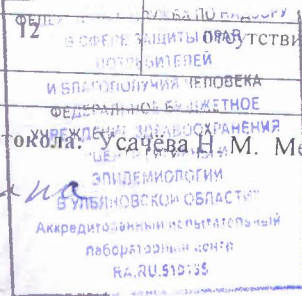 ПО НАДЗОРУ
12 В СФЕРЕ ЗАЩИТЫ ПРАВ отсутстви
ПОТРЕБИТЕЛЕЙ
И БЛАГОПОЛУЧИЯ ЧЕЛОВЕКА
ФЕДЕРАЛЬНОЕ БЮДЖЕТНОЕ
УЧРЕЖДЕНИЕ ЗДРАВООХРАНЕНИЯ
токола: Усачёва Н. М. Ме
ЭПИДЕМИОЛОГИИ
В УЛЬЯНОВСКОЙ ОБЛАСТИ"
Аккредитованный испытательный
лабораторный центр
RA.RU.510135